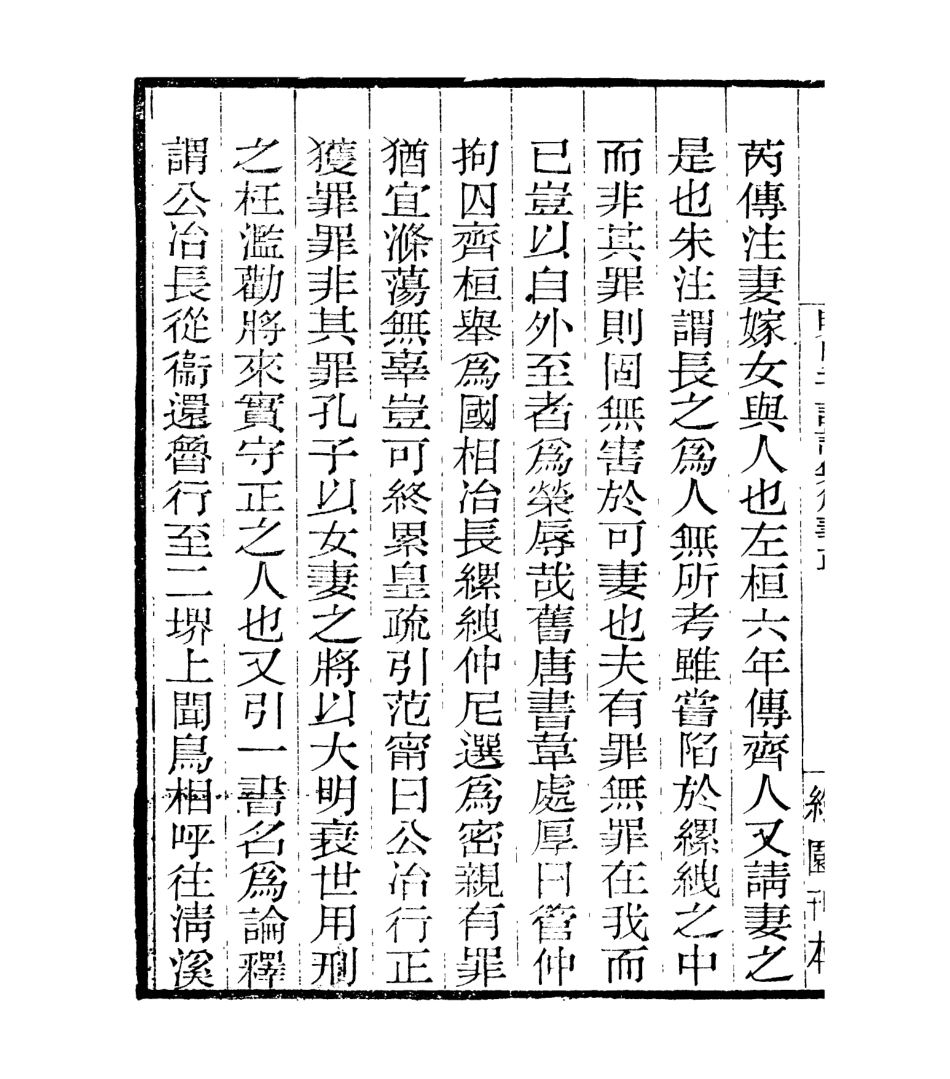 芮傳注妻嫁女與人也左桓六年傳齊人又請妻之
是也朱注謂長之爲人無所考雖嘗陷於縲絏之中
而非其罪則固無害於可妻也夫有罪無罪在我而
已豈以自外至者爲榮辱哉舊唐書韋處厚曰管仲
拘囚齊桓舉爲國相冶長縲絏仲尼選爲密親有罪
猶宜滌蕩無辜豈可終累皇疏引范甯曰公冶行正
獲罪罪非其罪孔子以女妻之將以大明衰世用刑
之枉濫勸將來實守正之人也又引一書名爲論釋
謂公冶長從衞還魯行至二堺上聞鳥相呼往淸溪
園刊本